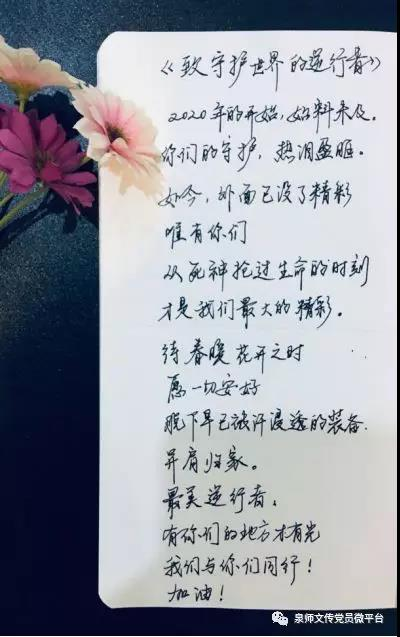 《致守护世界的逆行者》
2020年的开始，始料未及.
你们的守护，热泪盈眶.
如今，外面已没了精彩
唯有你们
从死神抢过生命的时刻
才是我们最大的精彩。
待春暖花开之时
愿一切安好
脱下早已被汗浸透的装备.
并肩归家。
最美逆行者，
有你们的地方才有光
我们与你们同行！
加油！
泉师文传党员微平台